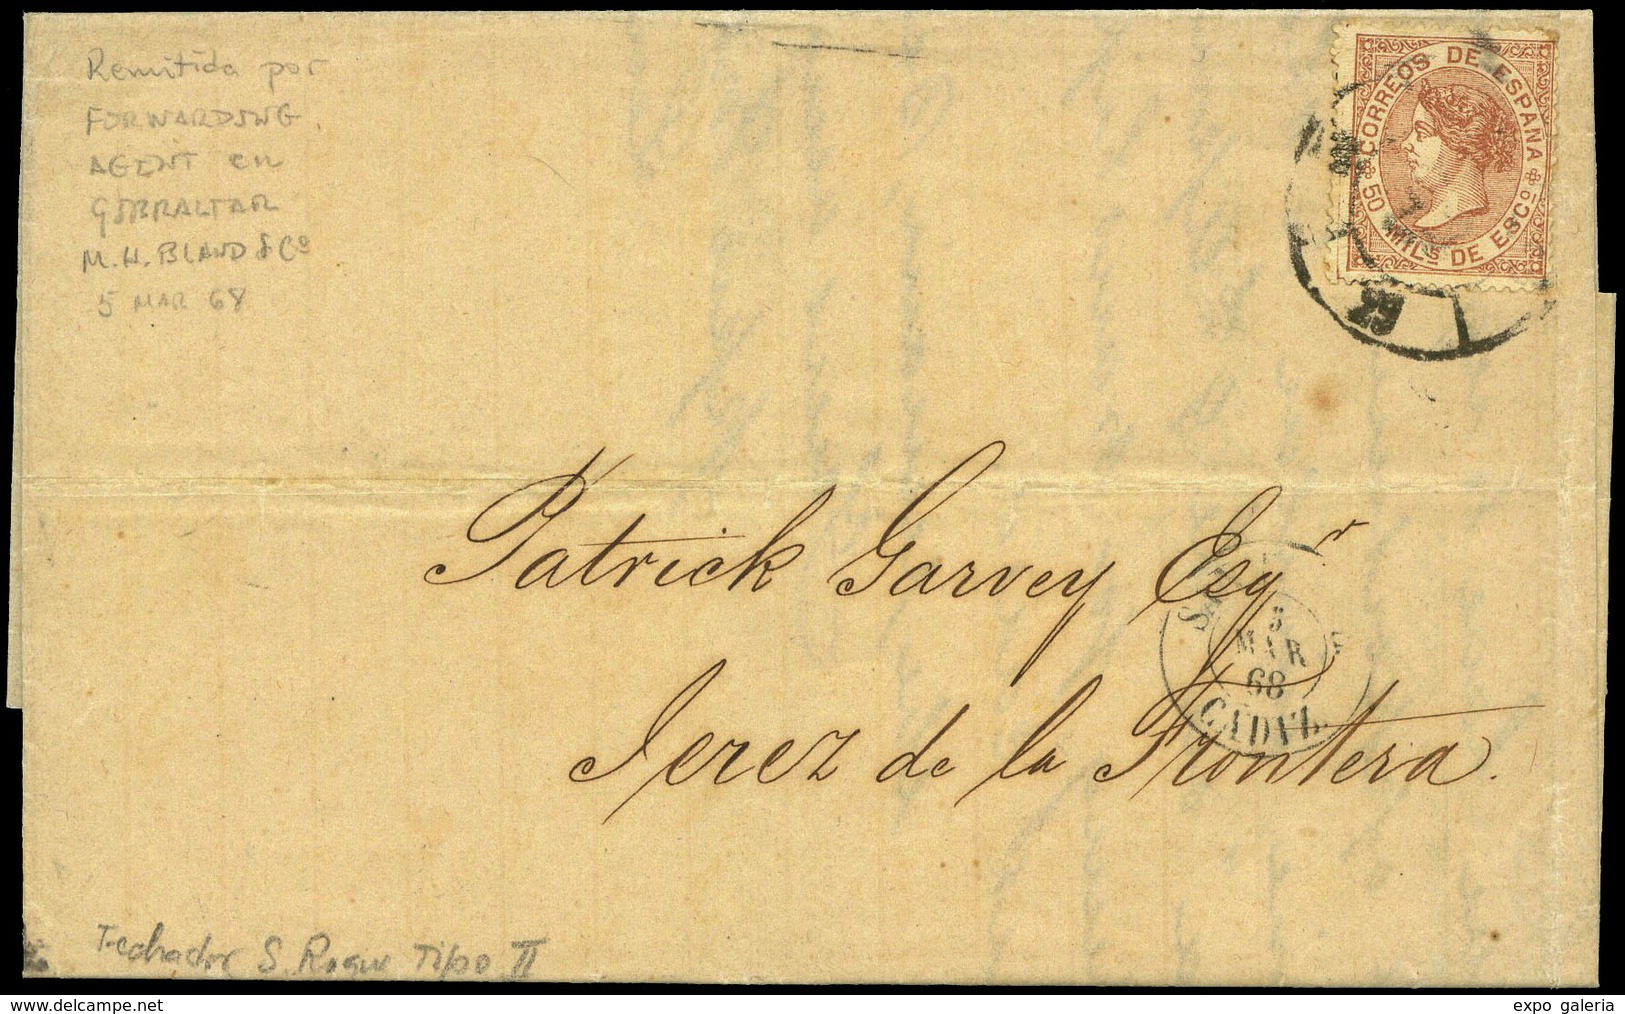 Remitida por
FORWARDING
AGENT en
GIBRALTAR
M. H. BLAND & Co
5 MAR 68
CORREOS DE ESPANA
50 MILS DE ESCO
Patrick Garvey Esqr
Jerez de la Frontera.
5
MAR
68
CADIZ.
Fechador S. Roque Tipo II
www.delcampe.net
expo galeria